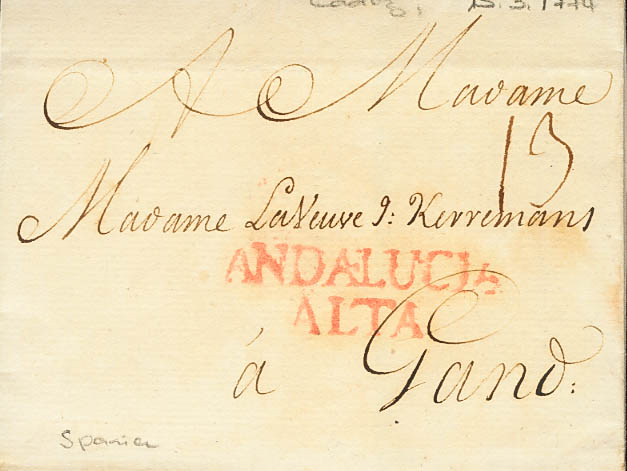 Cadiz, 15.3.1774
A Madame
13
Madame LaVeuve J: Kerremans
ANDALUCIA
ALTA
á Gand:
Spanien